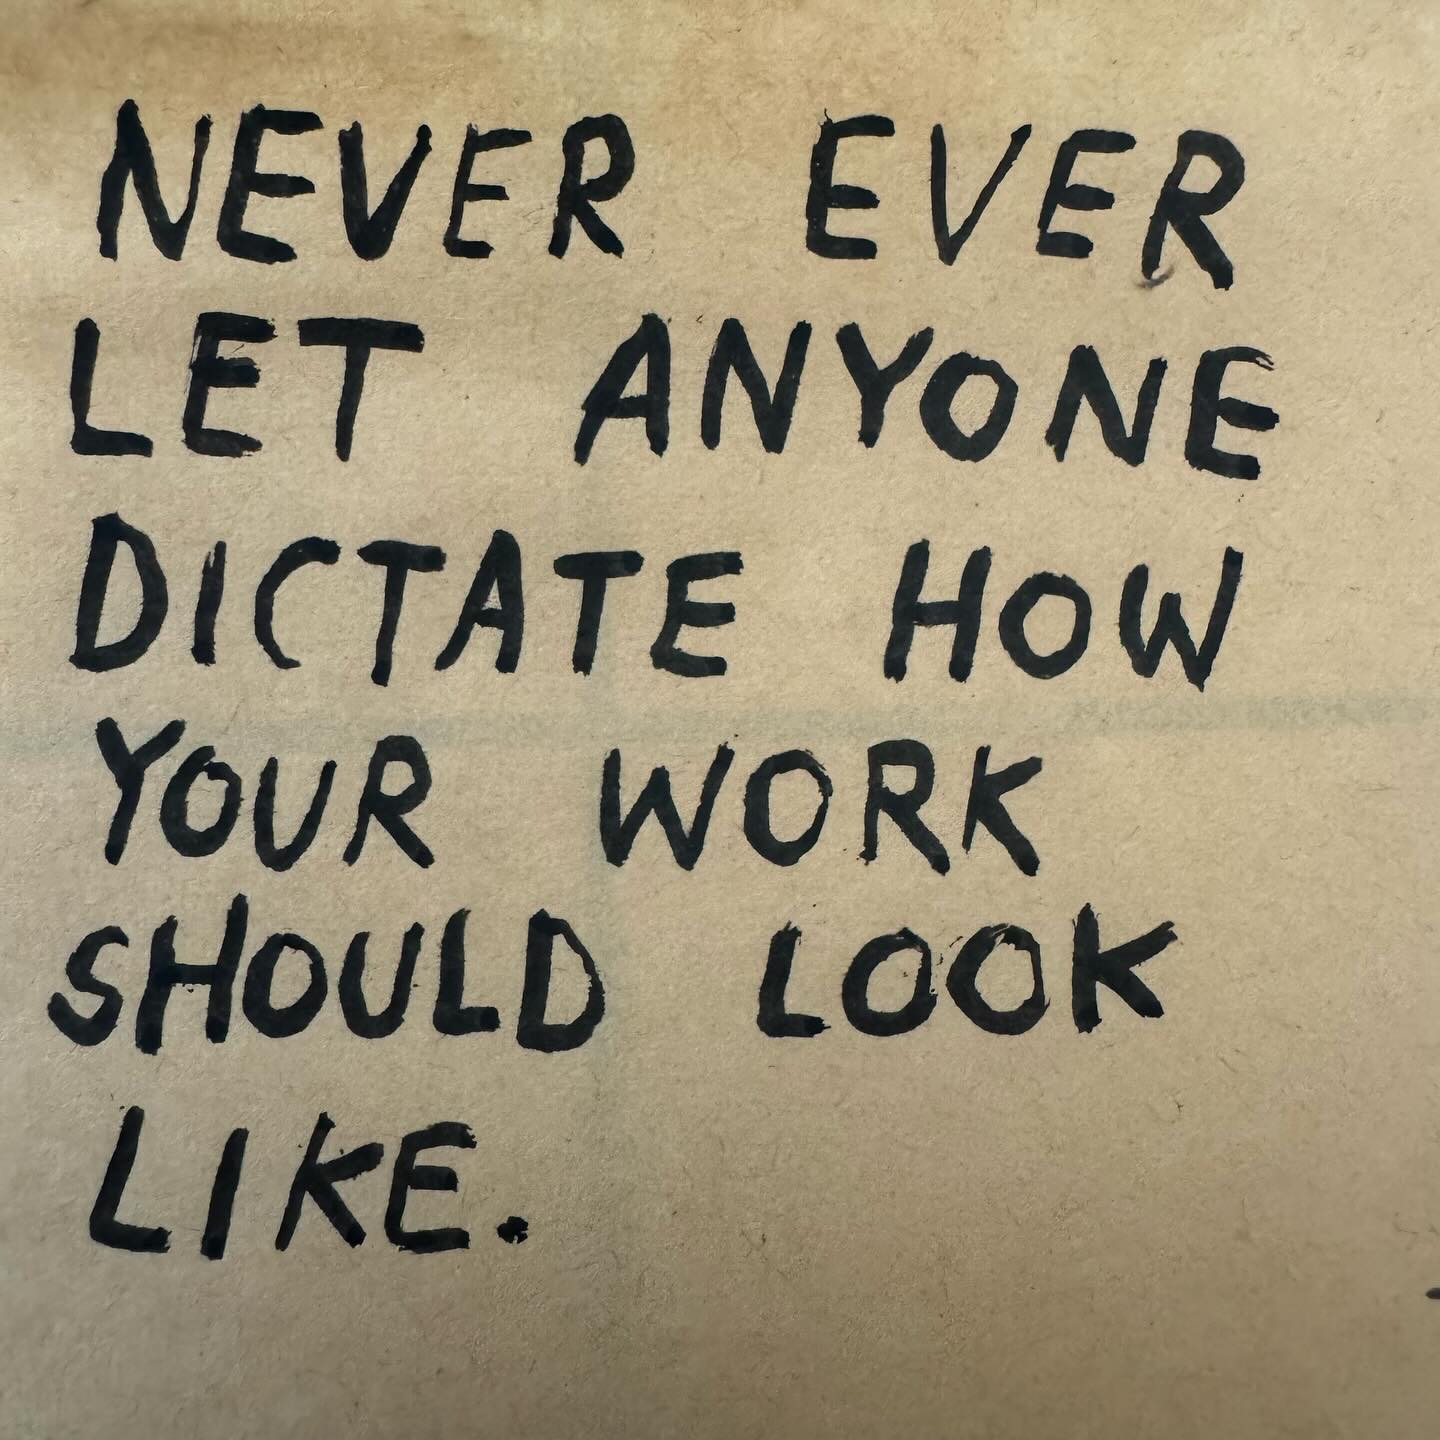 NEVER EVER
LET ANYONE
DICTATE HOW
YOUR WORK
SHOULD LOOK
LIKE.